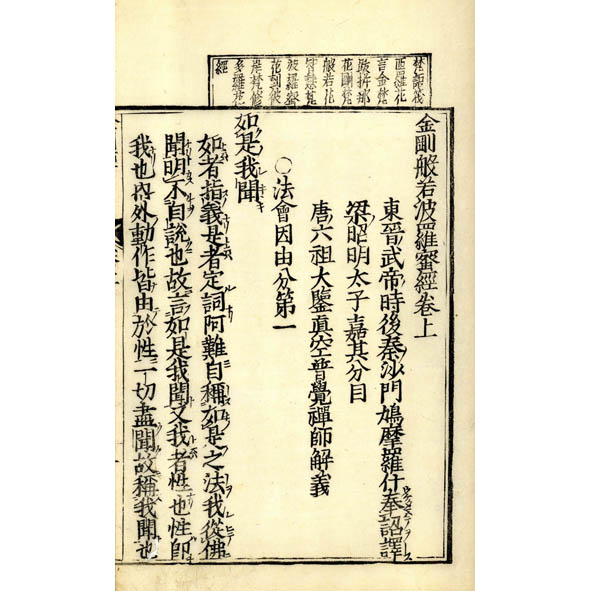 梵語筏
花剛梵
般若花
智慧梵
波羅蜜
花到彼
岸梵修
多羅花
經
金剛般若波羅蜜經卷上
東晉武帝時後秦沙門鳩摩羅什奉詔譯
梁昭明太子嘉其分目
唐六祖大鑒眞空普覺禪師解義
○法會因由分第一
如是我聞
如者指義是者定詞阿難自稱如是之法我從佛
聞明不自說也故言如是我聞又我者性也性即
我也內外動作皆由於性一切盡聞故稱我聞也